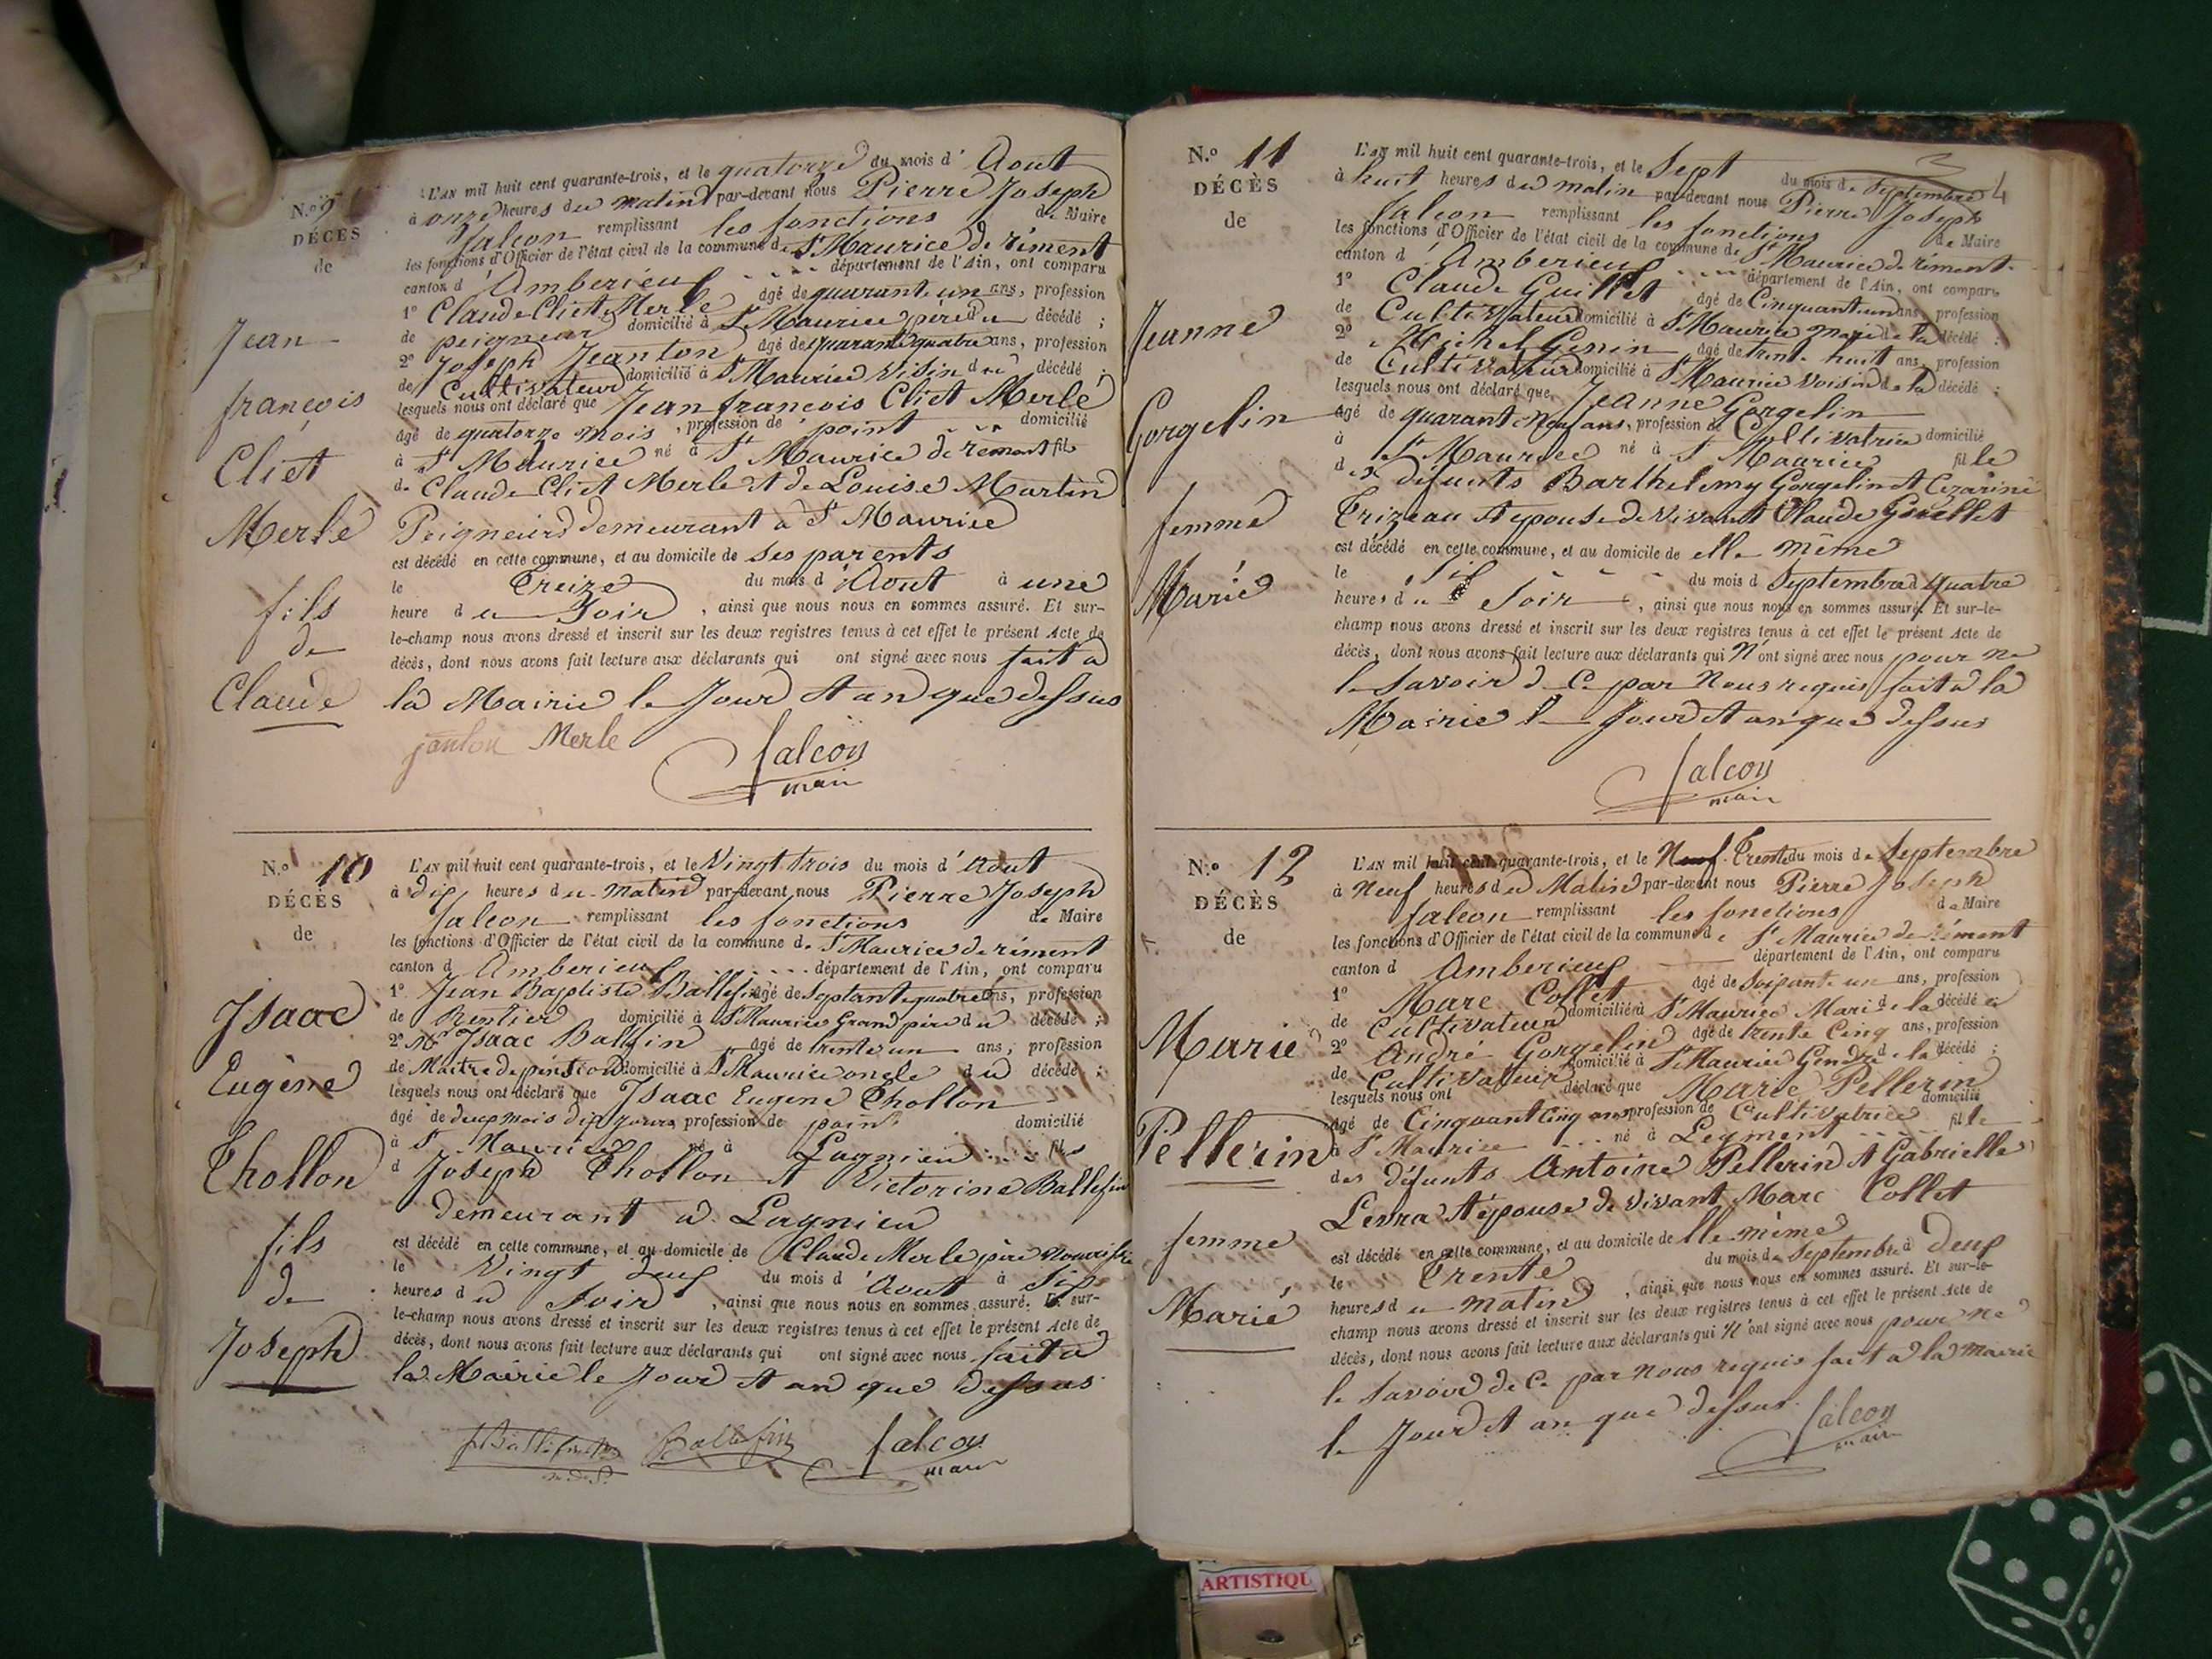 N.º 9
DÉCÈS
de
Jean
françois
Cliet
Merle
fils
de
Claude
L'AN mil huit cent quarante-trois, et le quatorze du mois d'Aout
à onze heures du matin par-devant nous Pierre Joseph
falcon remplissant les fonctions de Maire
les fonctions d'Officier de l'état civil de la commune de St Maurice de rément
canton d'Amberieux département de l'Ain, ont comparu
1º Claude Cliet Merle âgé de quarante un ans, profession
de peigneur domicilié à St Maurice père du décédé ;
2º Joseph Jeanton âgé de quarante quatre ans, profession
de Cultivateur domicilié à St Maurice visin du décédé ;
lesquels nous ont déclaré que Jean françois Cliet Merle
âgé de quatorze mois, profession de point domicilié
à St Maurice né à St Maurice de rément fils
de Claude Cliet Merle et de Louise Martin
Peigneurs demeurant à St Maurice
est décédé en cette commune, et au domicile de ses parents
le Treize du mois d'Aout à une
heure du Soir, ainsi que nous nous en sommes assuré. Et sur-
le-champ nous avons dressé et inscrit sur les deux registres tenus à cet effet le présent Acte de
décès, dont nous avons fait lecture aux déclarants qui ont signé avec nous fait à
la Mairie le Jour et an que dessus
janton Merle falcon
maire
N.º 10
DÉCÈS
de
Isaac
Eugène
Thollon
fils
de
Joseph
L'AN mil huit cent quarante-trois, et le Vingt trois du mois d'Aout
à dix heures du matin par-devant nous Pierre Joseph
falcon remplissant les fonctions de Maire
les fonctions d'Officier de l'état civil de la commune de St Maurice de rément
canton d'Amberieux département de l'Ain, ont comparu
1º Jean Baptiste Ballefin âgé de Septante quatre ans, profession
de Rentier domicilié à St Maurice Grand père du décédé ;
2º Mr Isaac Balfin âgé de trente un ans, profession
de Maître de pension domicilié à St Maurice oncle du décédé ;
lesquels nous ont déclaré que Isaac Eugene Thollon
âgé de deux mois dix jours, profession de point domicilié
à St Maurice né à Lagnieu fils
d Joseph Thollon et Victorine Ballefin
demeurant à Lagnieu
est décédé en cette commune, et au domicile de Claude Merle père
le Vingt deux du mois d'Aout à Six
heures du Soir, ainsi que nous nous en sommes assuré. Et sur-
le-champ nous avons dressé et inscrit sur les deux registres tenus à cet effet le présent Acte de
décès, dont nous avons fait lecture aux déclarants qui ont signé avec nous fait à
la Mairie le Jour et an que dessus
Ballefin falcon
maire
4
N.º 11
DÉCÈS
de
Jeanne
Gorgelin
femme
Marié
L'AN mil huit cent quarante-trois, et le Sept du mois de Septembre
à huit heures du matin par-devant nous Pierre Joseph
falcon remplissant les fonctions de Maire
les fonctions d'Officier de l'état civil de la commune de St Maurice de rément
canton d'Amberieux département de l'Ain, ont comparu
1º Claude Guillet âgé de Cinquant un ans, profession
de Cultivateur domicilié à St Maurice mari de la décédé ;
2º Michel Genin âgé de trente huit ans, profession
de Cultivateur domicilié à St Maurice voisin de la décédé ;
lesquels nous ont déclaré que Jeanne Gorgelin
âgé de quarant neuf ans, profession de Cultivatrice domicilié
à St Maurice né à St Maurice fille
des défunts Barthelemy Gorgelin et Cezarine
Trizeau et epouse de vivant Claude Guillet
est décédé en cette commune, et au domicile de elle même
le Six du mois d Septembre à quatre
heures du Soir, ainsi que nous nous en sommes assuré. Et sur-le-
champ nous avons dressé et inscrit sur les deux registres tenus à cet effet le présent Acte de
décès, dont nous avons fait lecture aux déclarants qui N'ont signé avec nous pour ne
le Savoir de Ce par Nous requis fait à la
Mairie le Jour et an que dessus
falcon
maire
N.º 12
DÉCÈS
de
Marie
Pellerin
femme
Marié
L'AN mil huit cent quarante-trois, et le Neuf Trente du mois de Septembre
à Neuf heures du Matin par-devant nous Pierre Joseph
falcon remplissant les fonctions de Maire
les fonctions d'Officier de l'état civil de la commune de St Maurice de rément
canton d Amberieux département de l'Ain, ont comparu
1º Marc Collet âgé de Soixante un ans, profession
de Cultivateur domicilié à St Maurice Mari de la décédé
2º André Gorgelin âgé de trente Cinq ans, profession
de Cultivateur domicilié à St Maurice Gendre de la décédé ;
lesquels nous ont déclaré que Marie Pellerin
âgé de Cinquant Cinq ans profession de Cultivatrice domicilié
à St Maurice né à Leyment fille
des défunts Antoine Pellerin et Gabrielle
et épouse de vivant Marc Collet
est décédé en cette commune, et au domicile de elle même
le Trente du mois de Septembre à deux
heures du matin, ainsi que nous nous en sommes assuré. Et sur-le-
champ nous avons dressé et inscrit sur les deux registres tenus à cet effet le présent Acte de
décès, dont nous avons fait lecture aux déclarants qui N'ont signé avec nous pour ne
le Savoir de Ce par Nous requis fait à la mairie
le Jour et an que dessus.
falcon
maire
ARTISTIQU